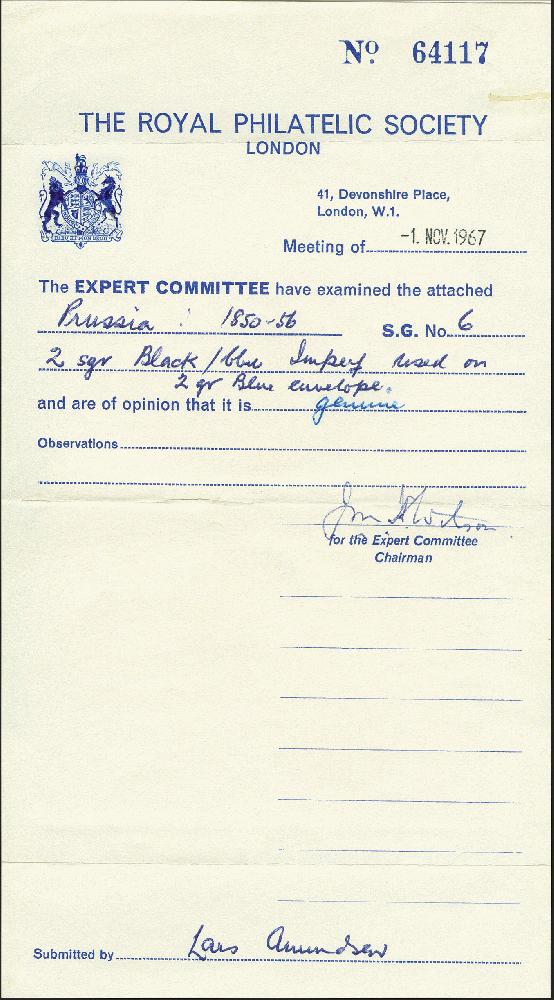 Nº 64117
THE ROYAL PHILATELIC SOCIETY
LONDON
41, Devonshire Place,
London, W.1.
Meeting of -1. NOV. 1967
The EXPERT COMMITTEE have examined the attached
Prussia : 1850-56 S.G. No. 6
2 sgr Black / blu Imperf used on
2 gr Blue envelope.
and are of opinion that it is genuine
Observations
for the Expert Committee
Chairman
Submitted by Lars Amundsen